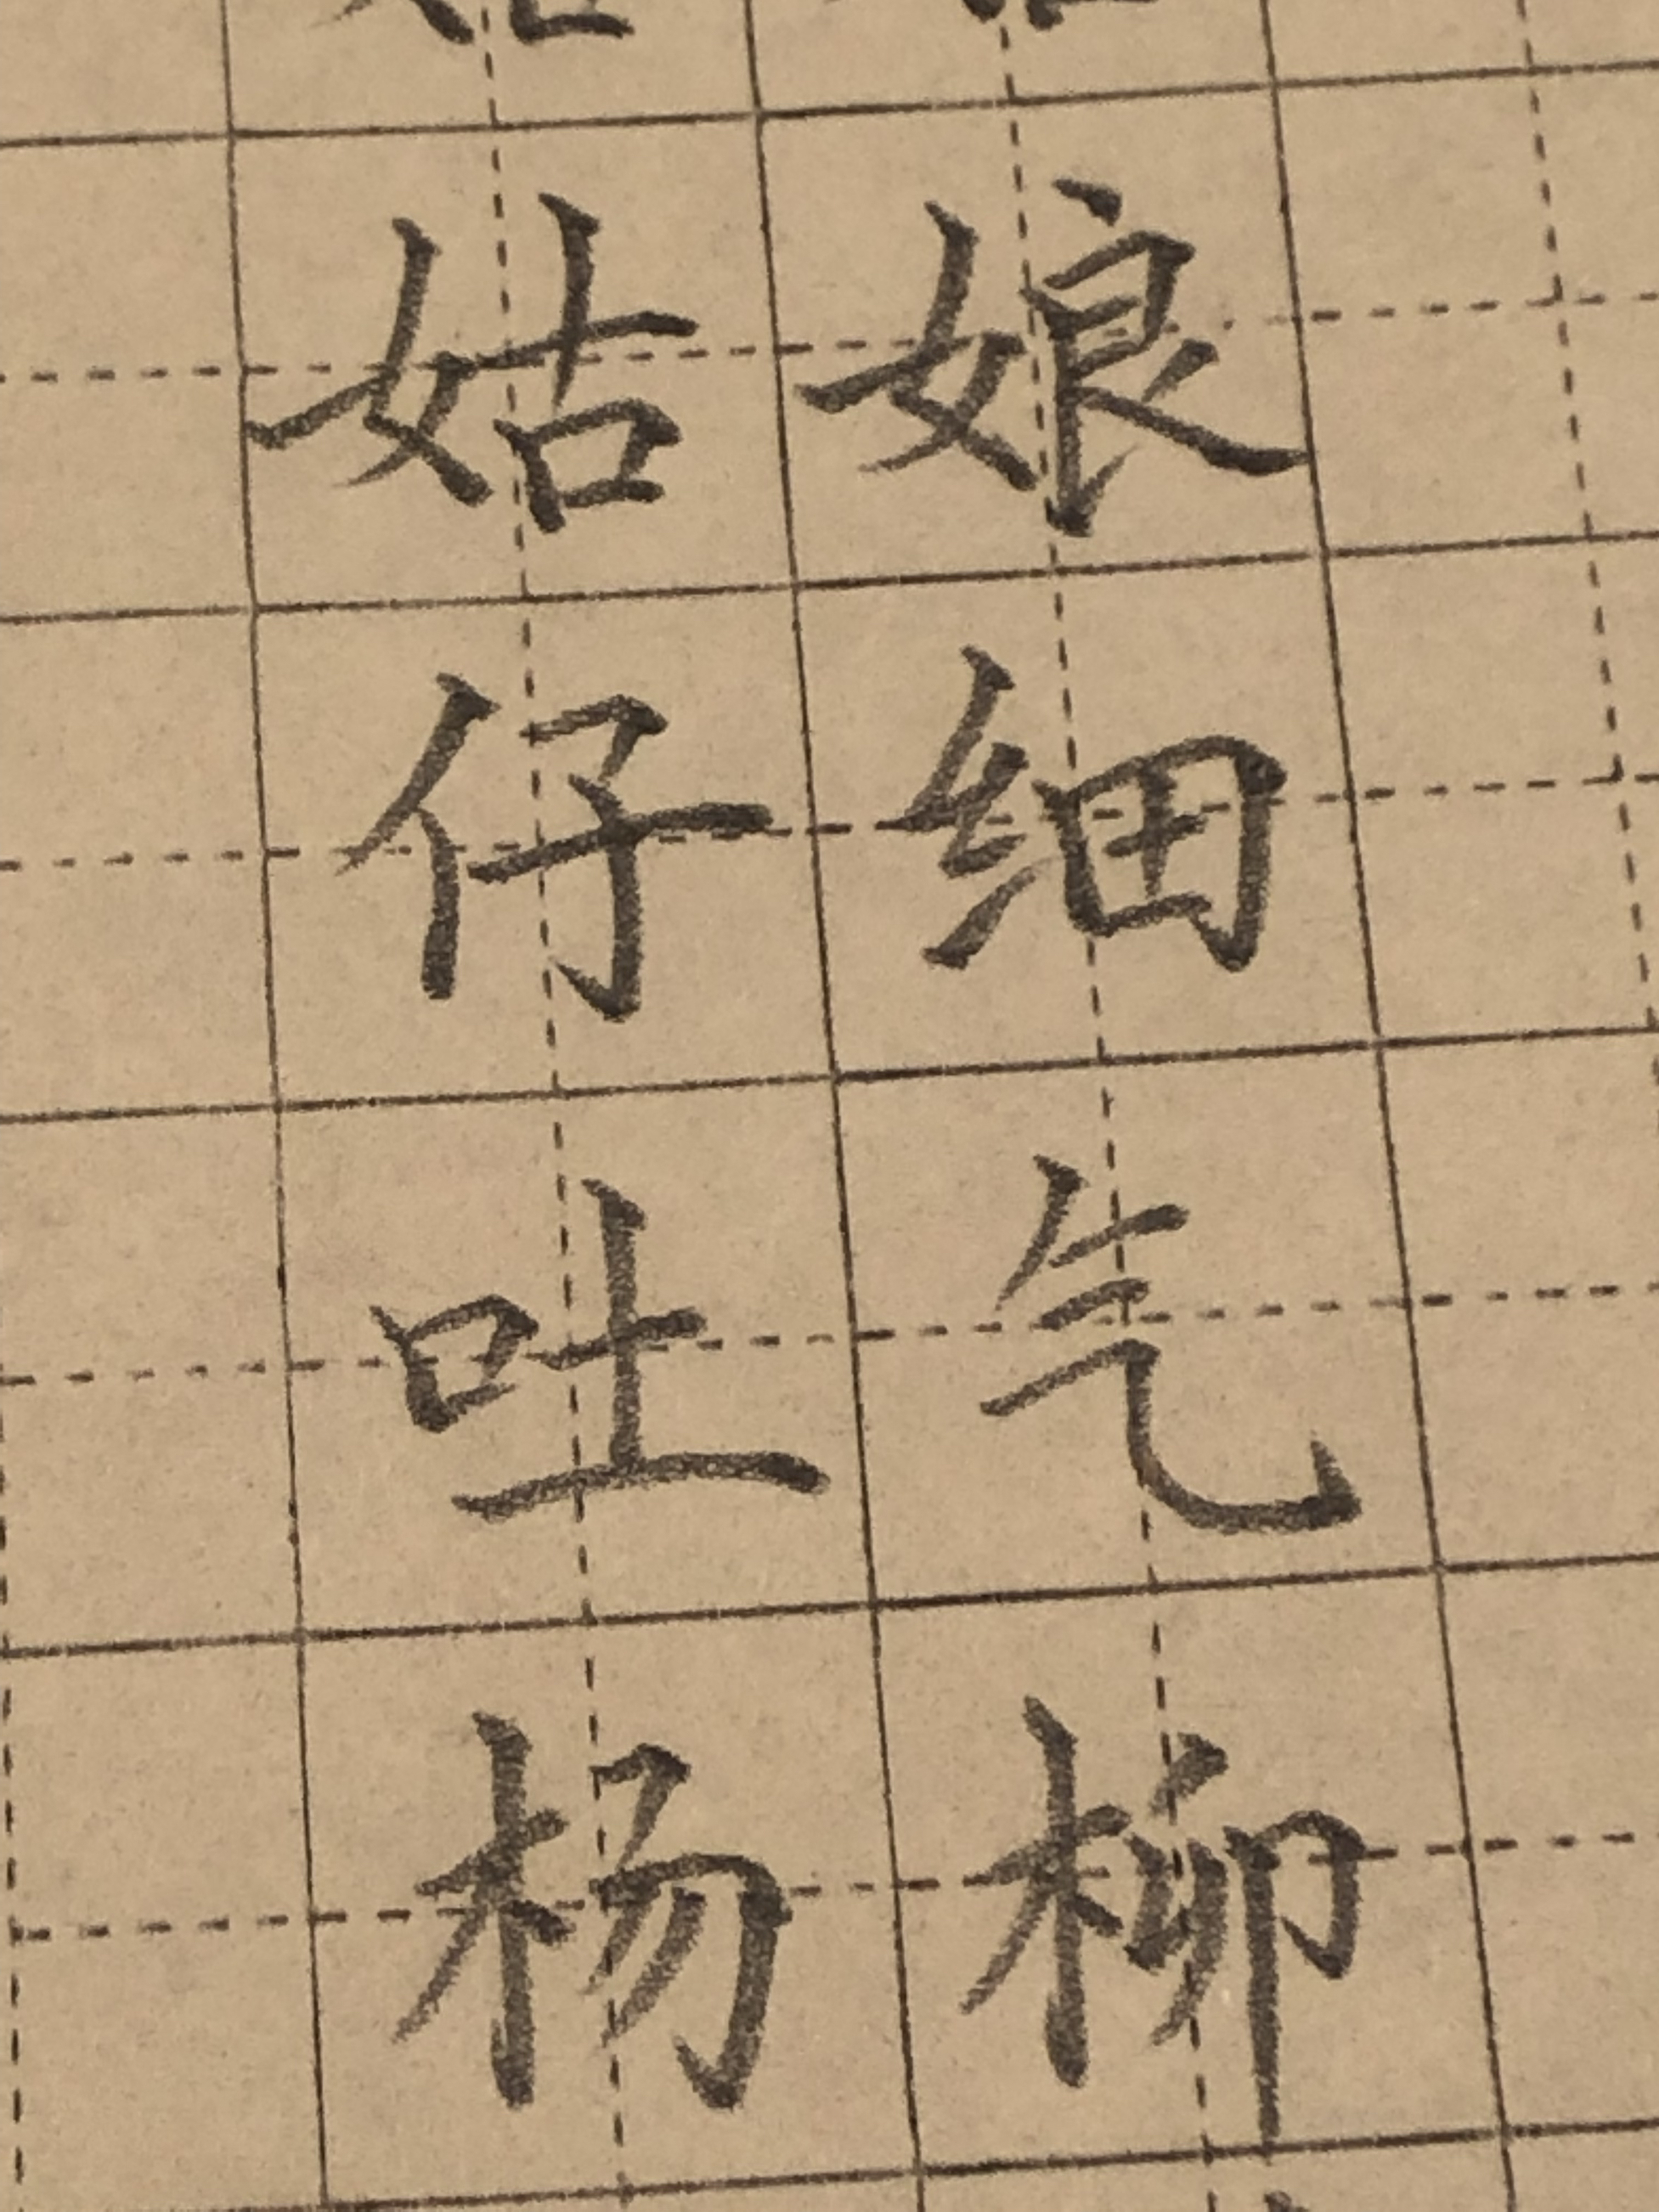 姑娘
仔细
吐气
杨柳